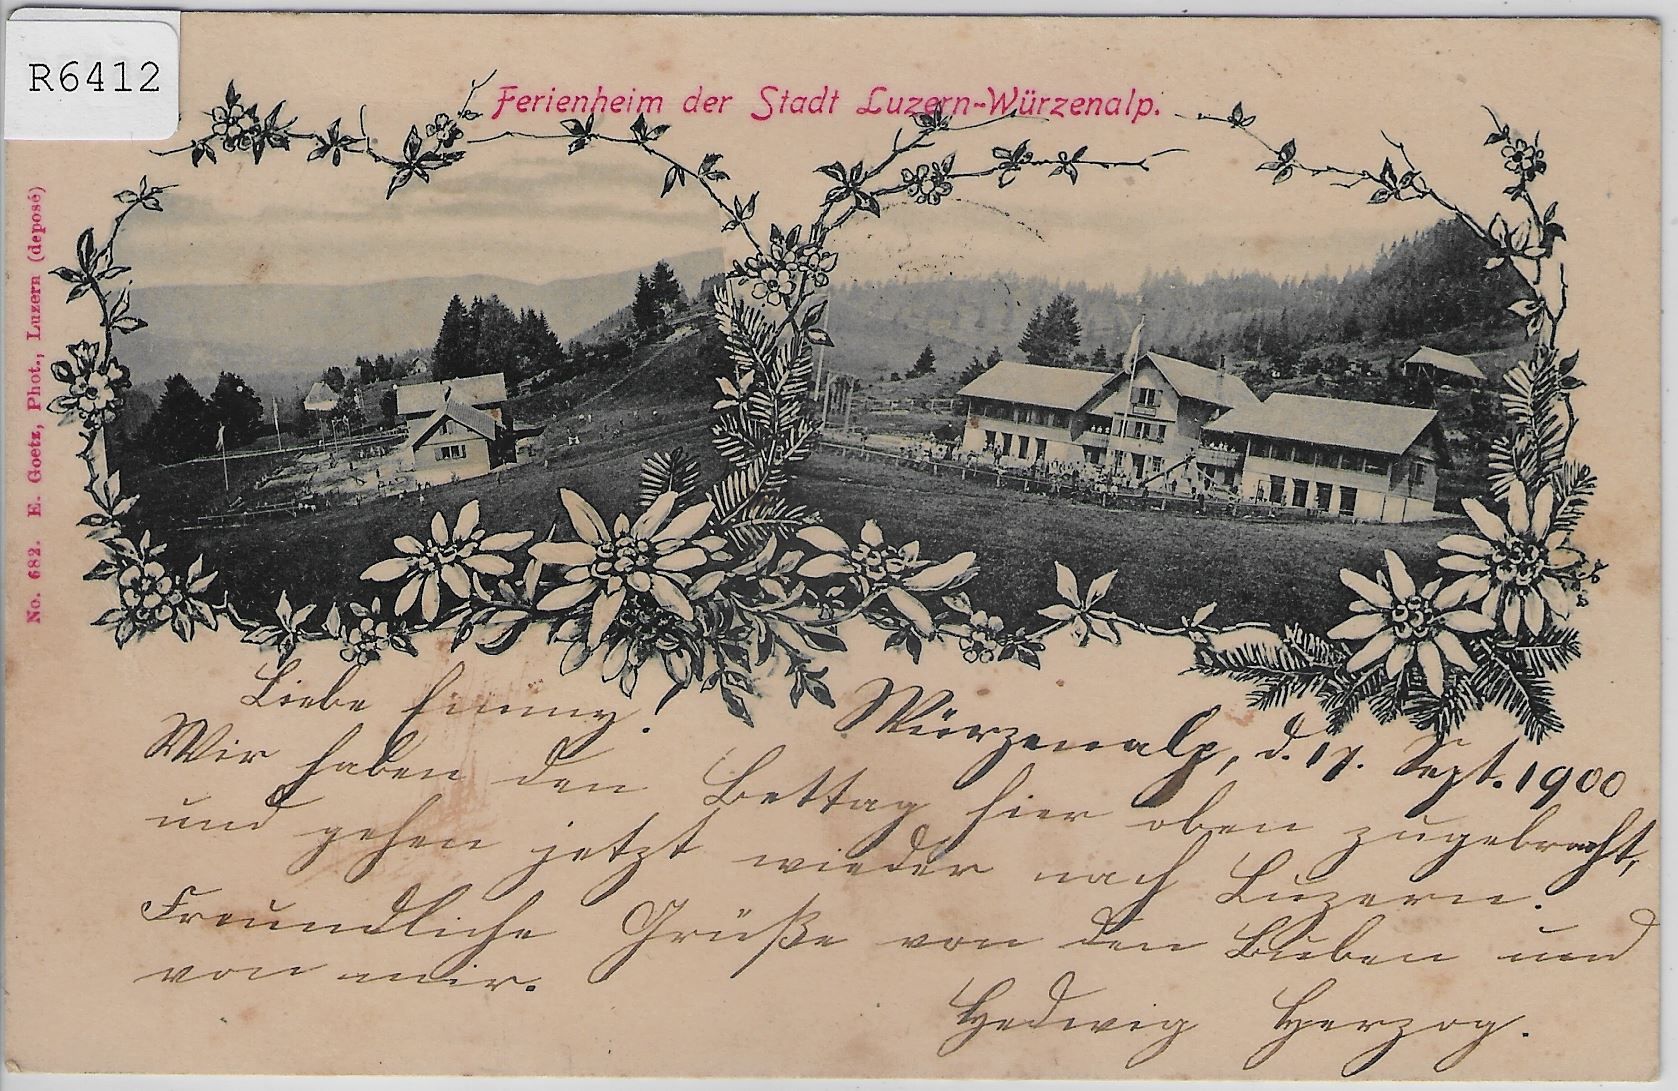 R6412
Ferienheim der Stadt Luzern-Würzenalp.
No. 682. E. Goetz, Phot., Luzern (deposé)
Würzenalp, d. 17. Sept. 1900
Liebe Emmy!
Wir haben den Bettag hier oben zugebracht,
und gehen jetzt wieder nach Luzern.
Freundliche Grüße von den Buben und
von mir.
Hedwig Herzog.